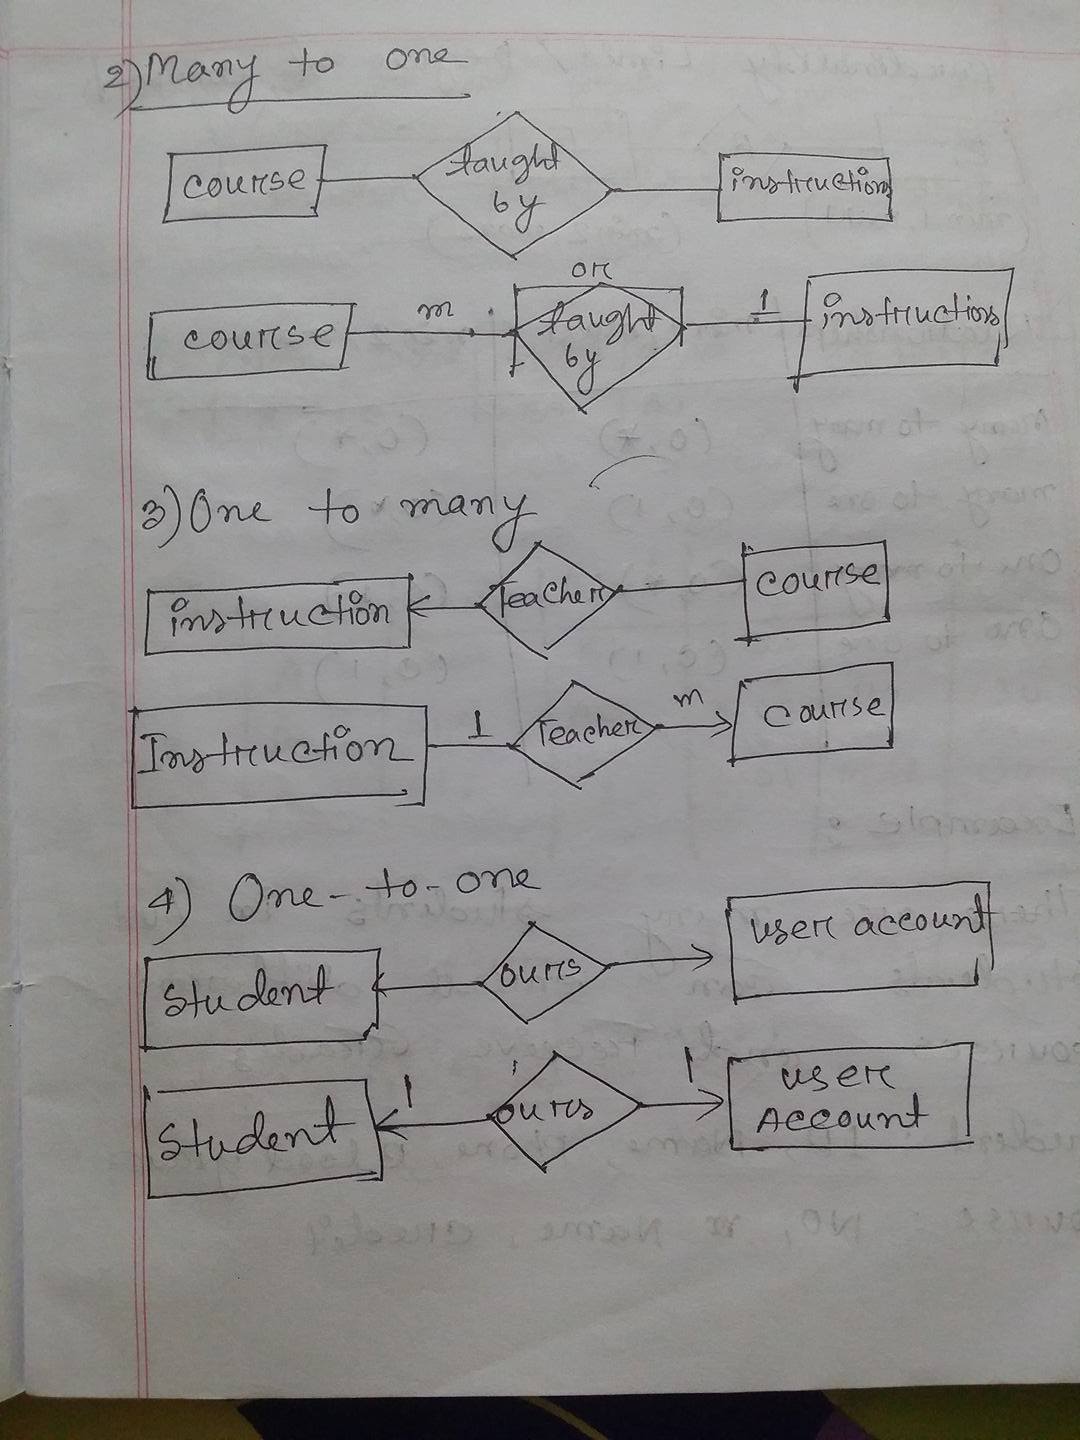 2) Many to one
course taught by instruction
or
course m taught by 1 instruction
3) One to many
instruction Teacher course
Instruction 1 Teacher m course
4) One-to-one
Student ours user account
Student 1 ours 1 user Account